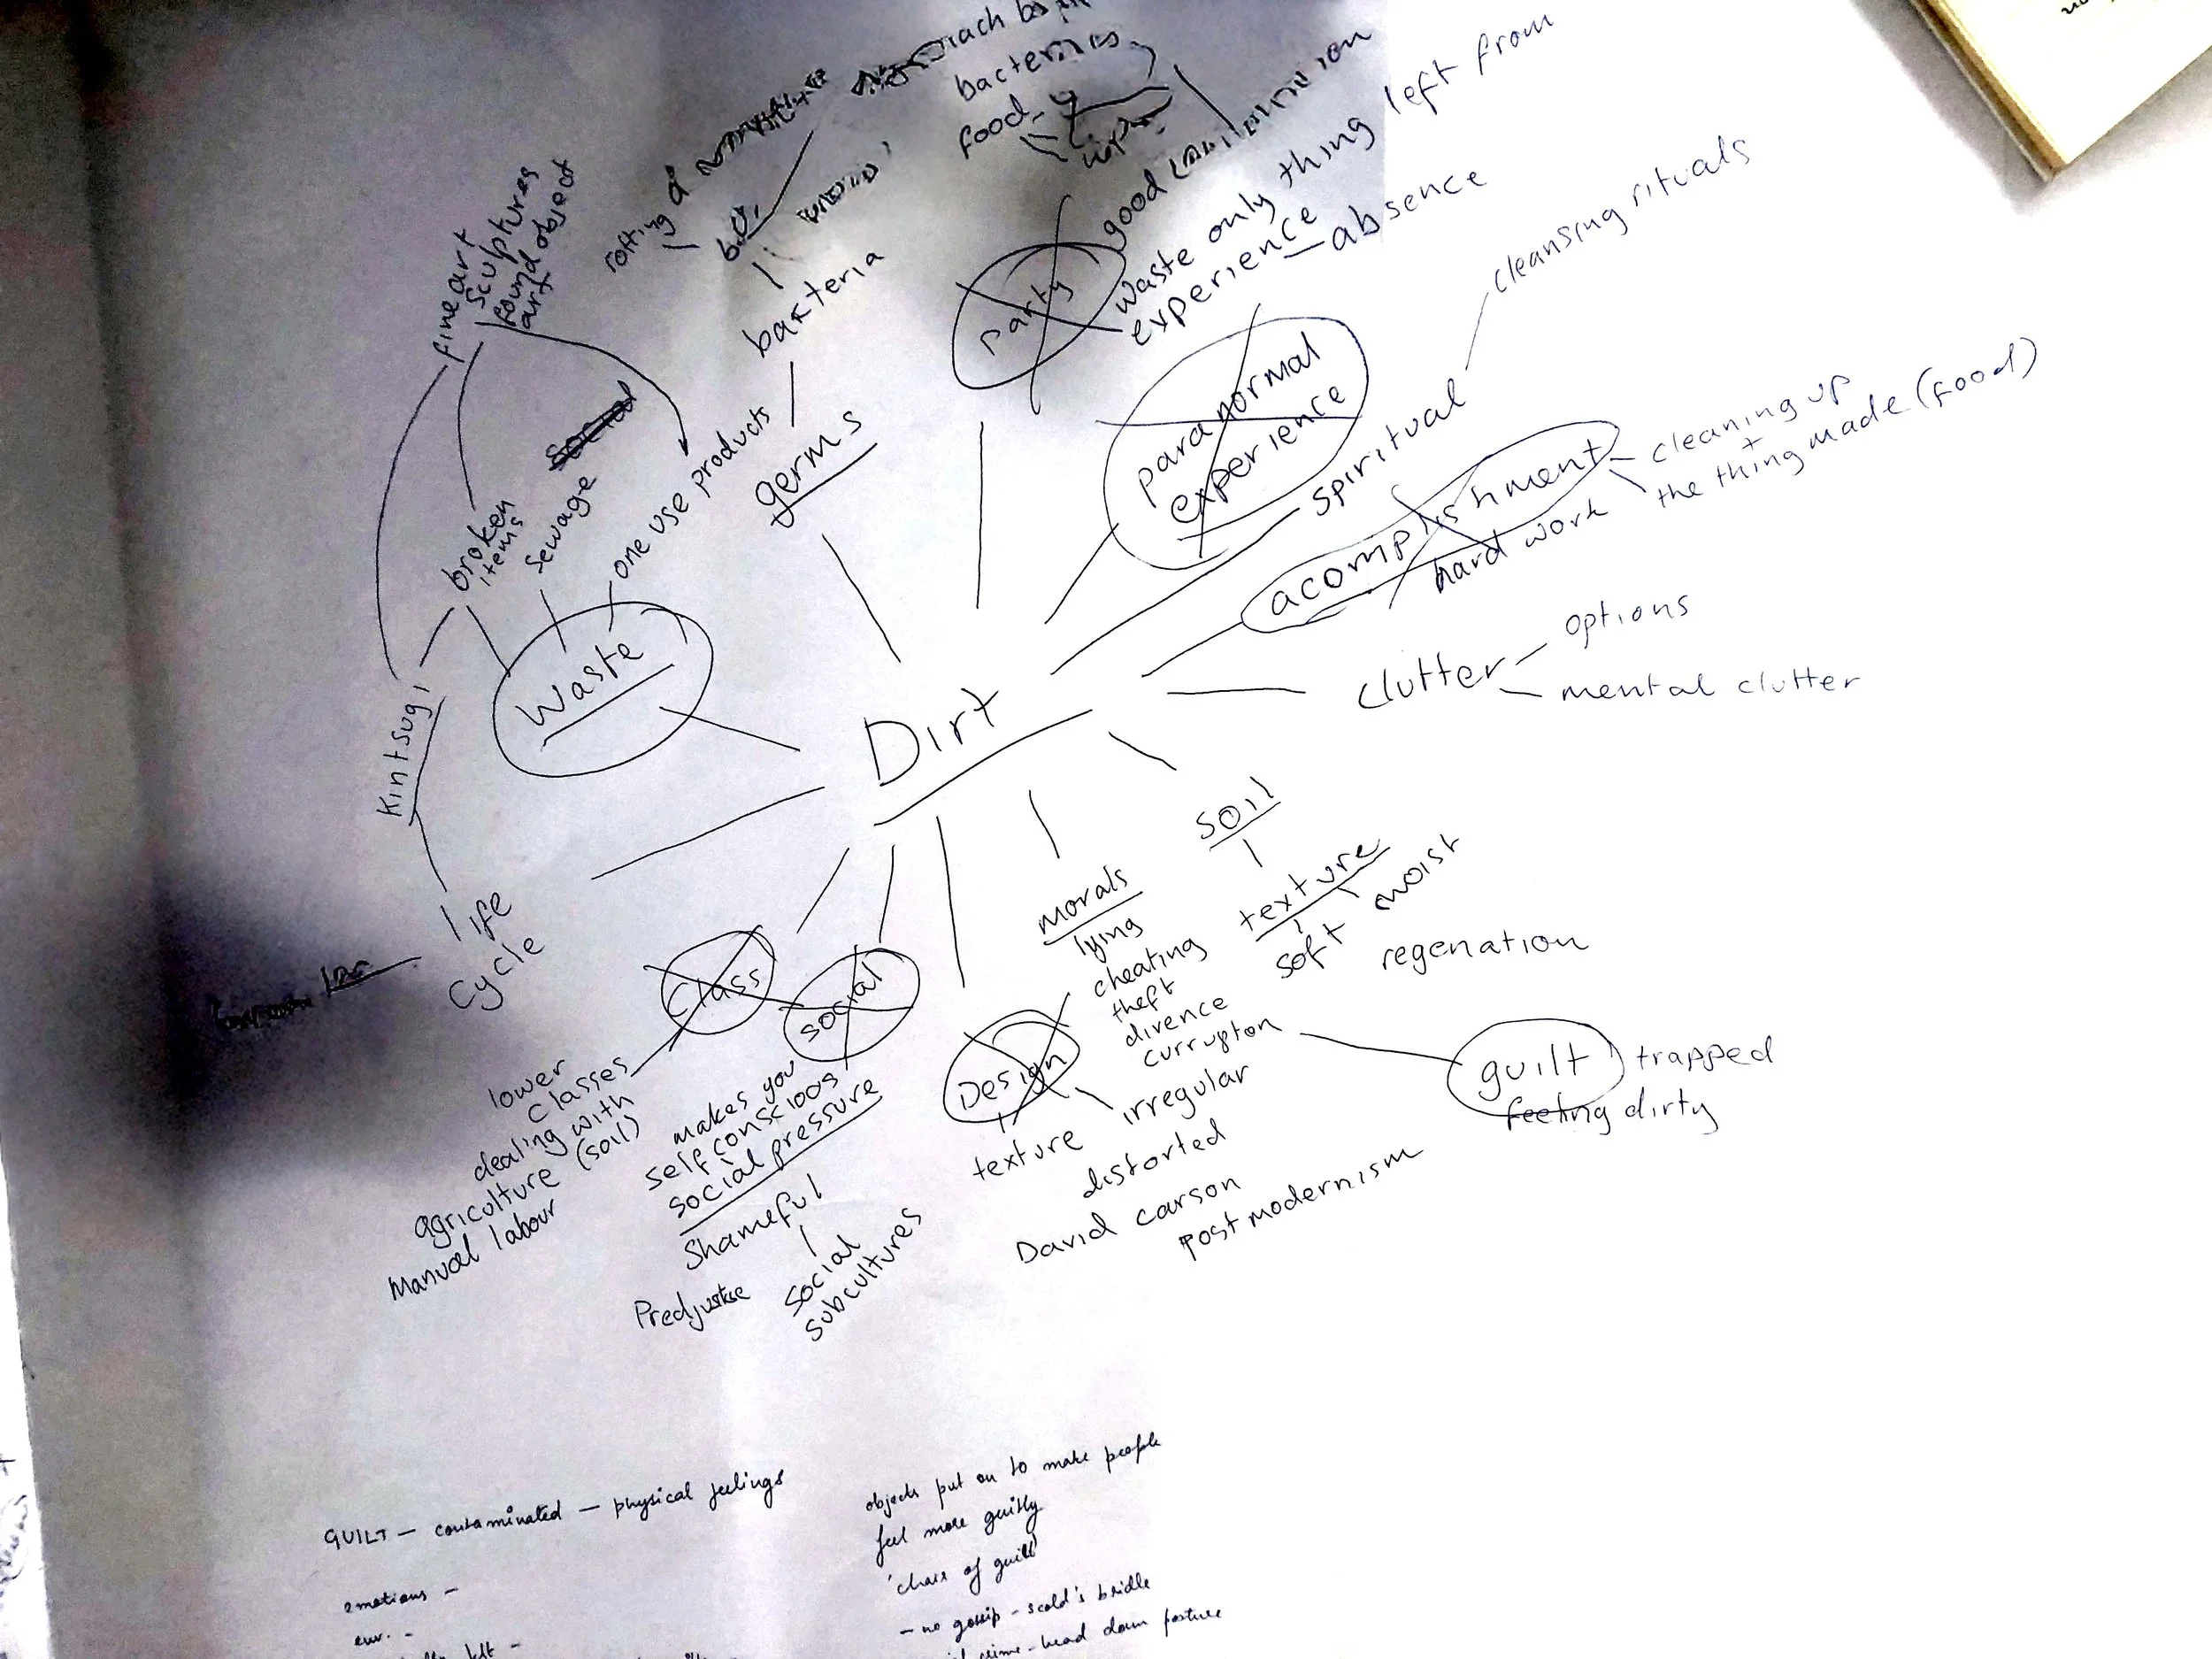 fine art
sculptures
found object
art
rotting
b.o.
bakteria
bacterias
food
party
good
waste only thing left from
experience — absence
paranormal
experience
spiritual
cleansing rituals
acomplishment
hard work
cleaning up
+
the thing made (food)
clutter
options
mental clutter
germs
one use products
sewage
social
broken
items
Waste
Kintsugi
Dirt
life
cycle
class
lower
classes
dealing with
agriculture (soil)
manual labour
social
makes you
self conscious
social pressure
Shameful
Predjustise
social
subcultures
Design
texture
irregular
distorted
David carson
post modernism
morals
lying
cheating
theft
divence
curruption
guilt
trapped
feeling dirty
soil
texture
soft
moist
regenation
GUILT — contaminated — physical feelings
emotions —
env. -
objects put on to make people
feel more guilty
'chair of guilt'
- no gossip - scold's bridle
crime - head down posture